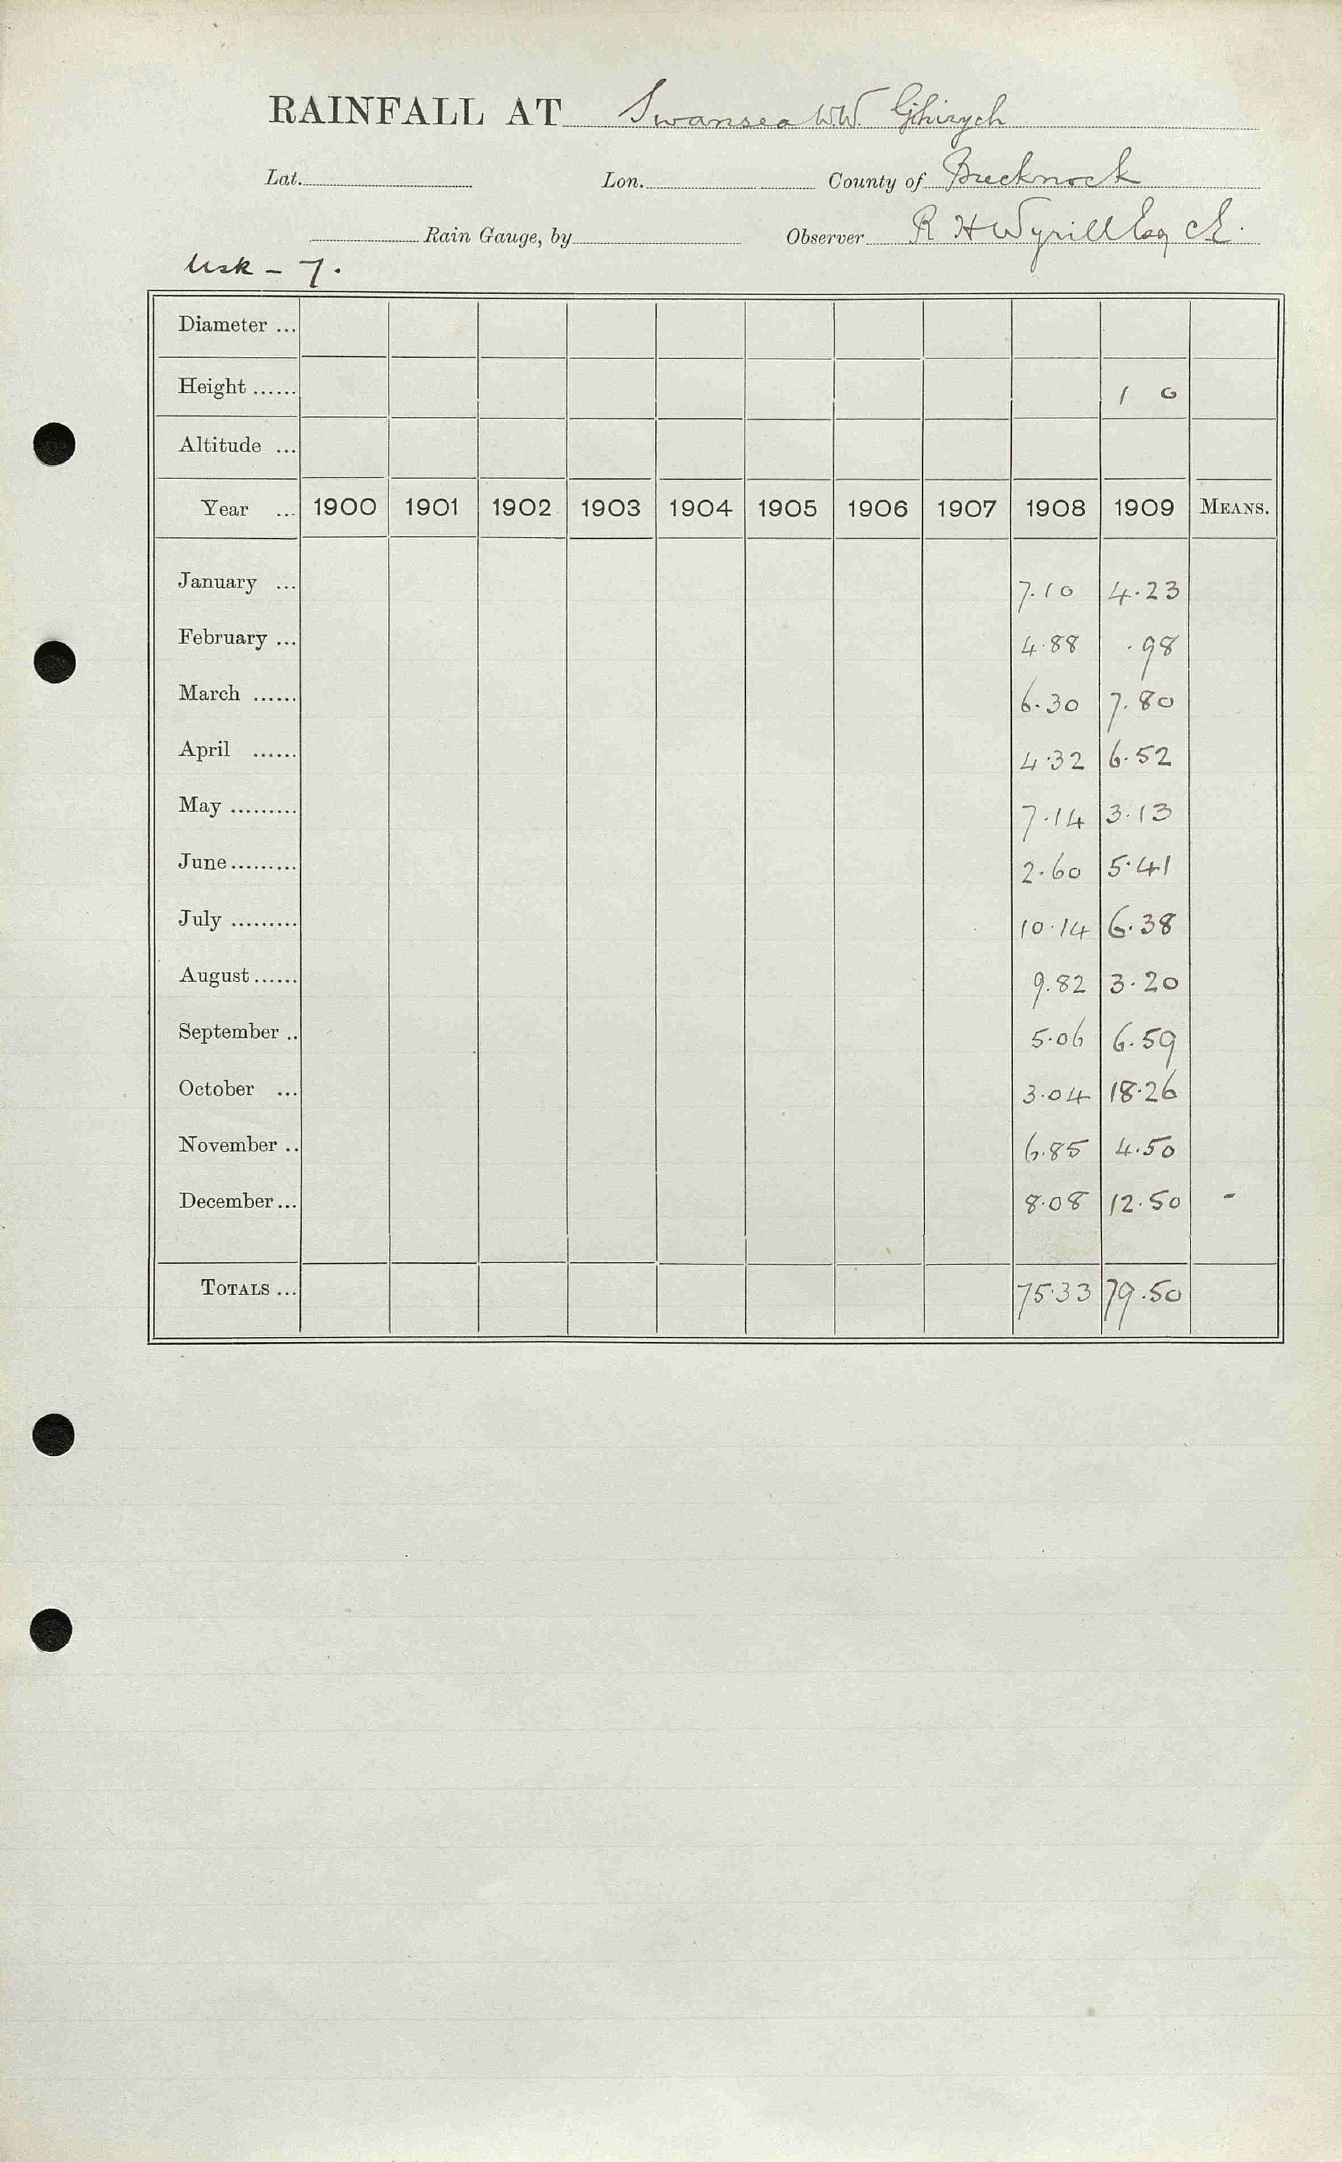 RAINFALL AT Swansea W.W. Gihirych
Lat. Lon. County of Brecknock
Rain Gauge, by Observer R H Wyrill Esq C.E.
Usk - 7.
Diameter ...
Height ...... 1 0
Altitude ...
Year ... 1900 1901 1902 1903 1904 1905 1906 1907 1908 1909 MEANS.
January ... 7.10 4.23
February ... 4.88 .98
March ...... 6.30 7.80
April ...... 4.32 6.52
May ......... 7.14 3.13
June ......... 2.60 5.41
July ......... 10.14 6.38
August ...... 9.82 3.20
September .. 5.06 6.59
October ... 3.04 18.26
November .. 6.85 4.50
December ... 8.08 12.50 -
TOTALS ... 75.33 79.50